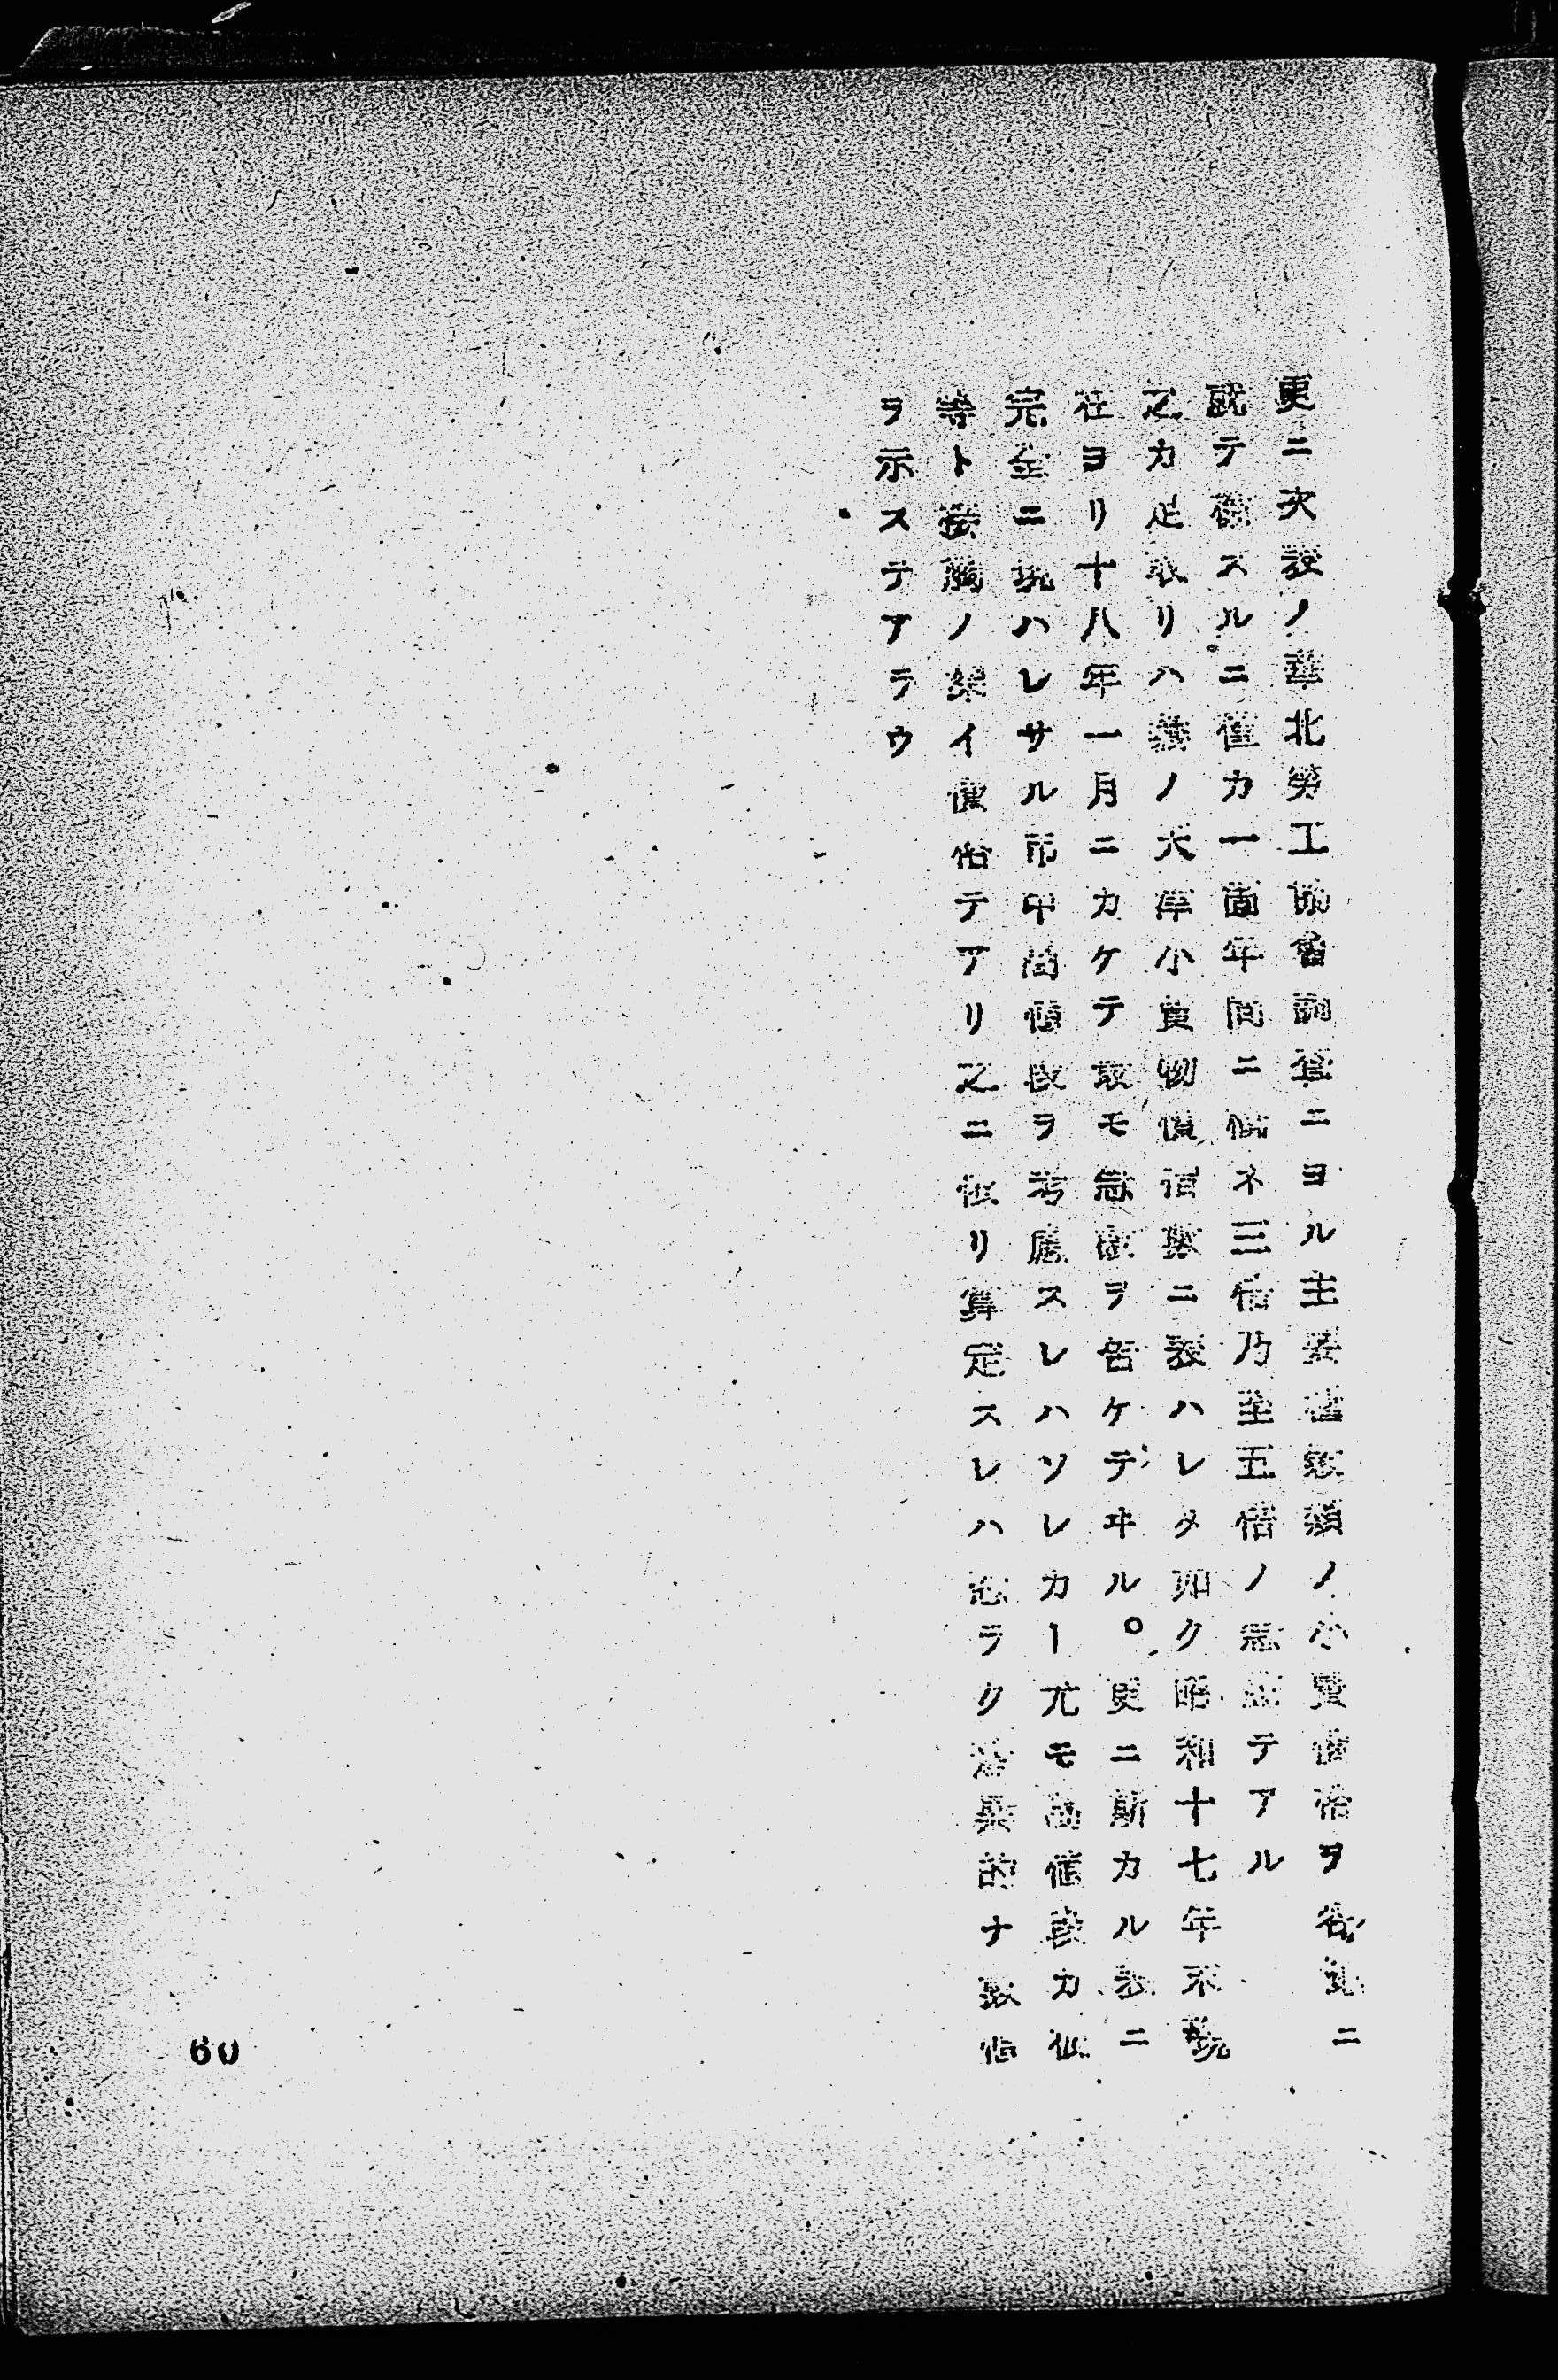 更ニ次表ノ華北勞工協會調査ニヨル主要 ノ小賣價格ヲ各地ニ
就テ檢スルニ僅カ一箇年間ニ概ネ三倍乃至五倍ノ急 テアル
之カ足取リハ ノ天津小賣物價指數ニ表ハレタ如ク昭和十七年末
ヨリ十八年一月ニカケテ最モ急 ヲ告ケテヰル。更ニ斯カル表ニ
完全ニ現ハレサル市中闇値段ヲ考慮スレハソレカー尤モ 値段カ
等ト 騰ノ 價格テアリ之ニ依リ算定スレハ恐ラク驚異的ナ數値
ヲ示ステアラウ
60